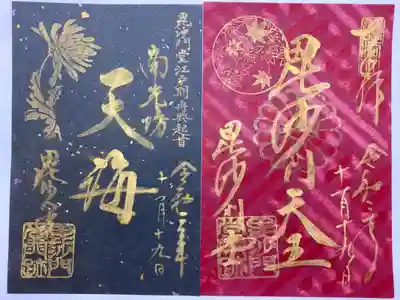 奉拝
令和二年
十一月十九日
毘沙門天王
毘沙門堂
毘沙門堂江戸期再興
南光坊
天海
令和二年
十一月十九日
毘沙門堂